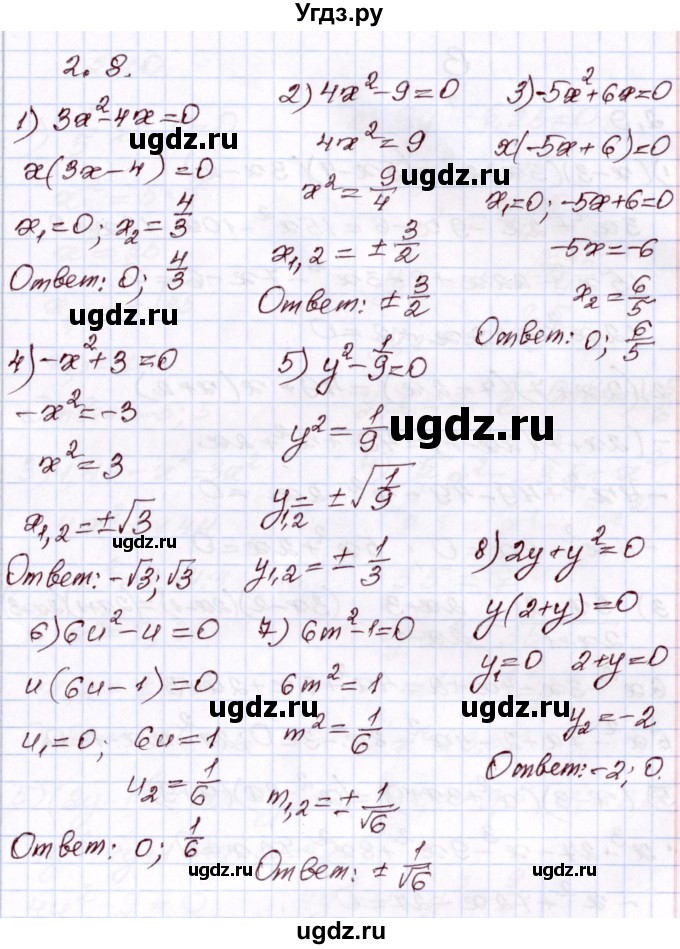 Угдз.ру
2. 8.
1) 3x²-4x=0
x(3x-4)=0
x₁=0; x₂=4/3
Ответ: 0; 4/3
2) 4x²-9=0
4x²=9
x²=9/4
x₁,₂=±3/2
Ответ: ±3/2
3) -5x²+6x=0
x(-5x+6)=0
x₁=0; -5x+6=0
-5x=-6
x₂=6/5
Ответ: 0; 6/5
4) -x²+3=0
-x²=-3
x²=3
x₁,₂=±√3
Ответ: -√3; √3
5) y²-1/9=0
y²=1/9
y₁,₂=±√(1/9)
y₁,₂=±1/3
6) 6u²-u=0
u(6u-1)=0
u₁=0; 6u=1
u₂=1/6
Ответ: 0; 1/6
7) 6m²-1=0
6m²=1
m²=1/6
m₁,₂=±1/√6
Ответ: ±1/√6
8) 2y+y²=0
y(2+y)=0
y₁=0 2+y=0
y₂=-2
Ответ: -2; 0.
ugdz.ru
ugdz.ru
ugdz.ru
ugdz.ru
ugdz.ru
ugdz.ru
ugdz.ru
ugdz.ru
ugdz.ru
ugdz.ru
ugdz.ru